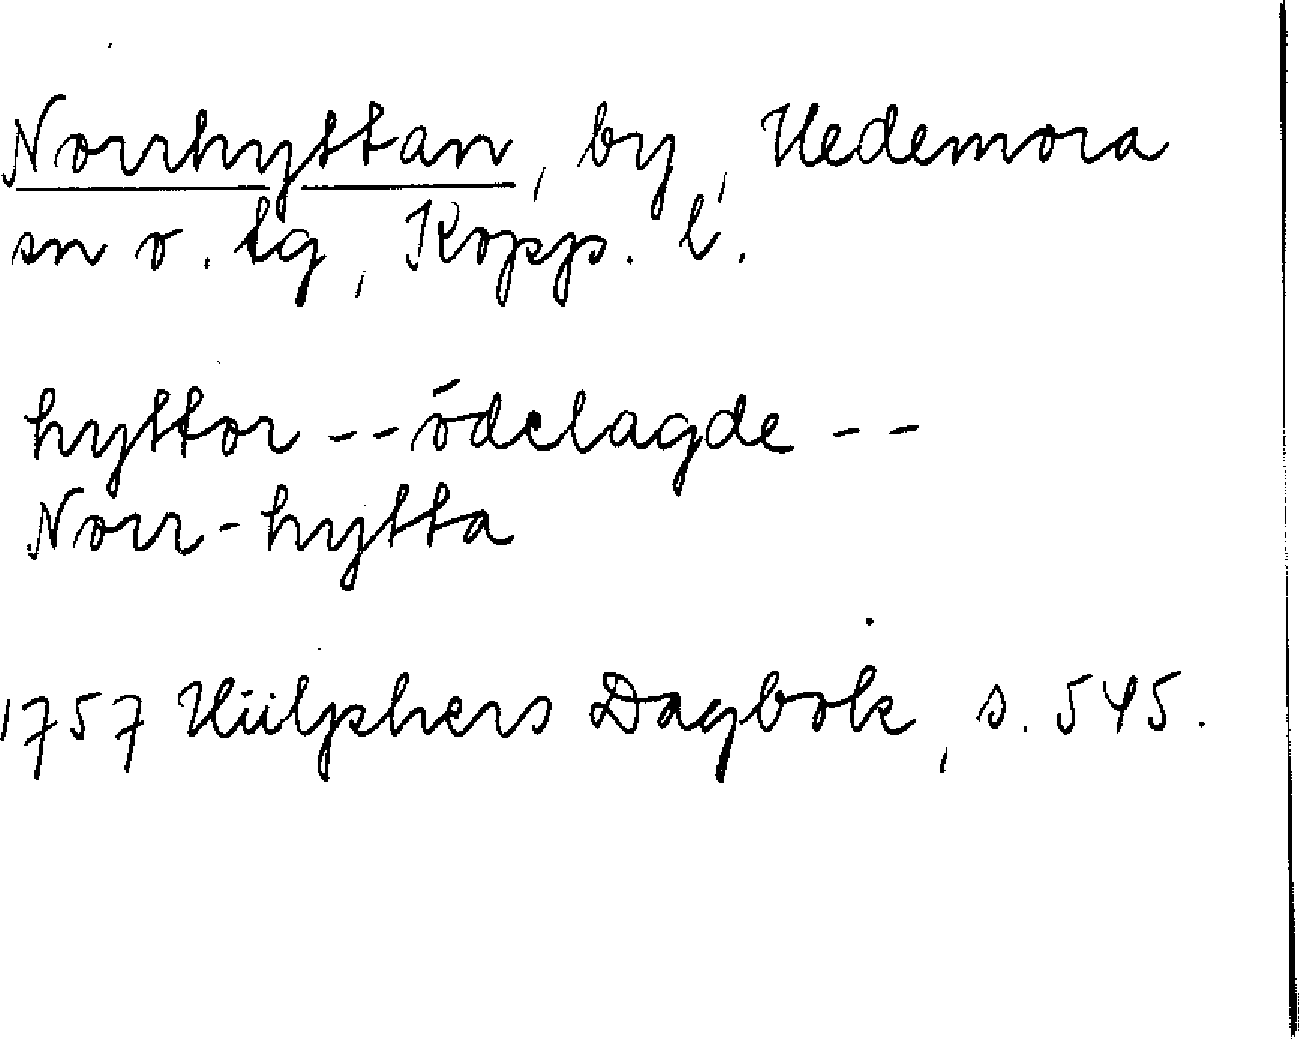 Norrhyttan, by, Hedemora
sn o. tg, Kopp. l.
hyttor -- ödelagde --
Norr-hytta
1757 Hülphers Dagbok, s. 545.